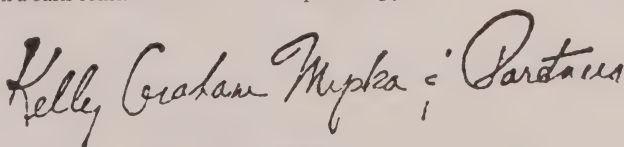 Kelly Graham Mypka & Partners